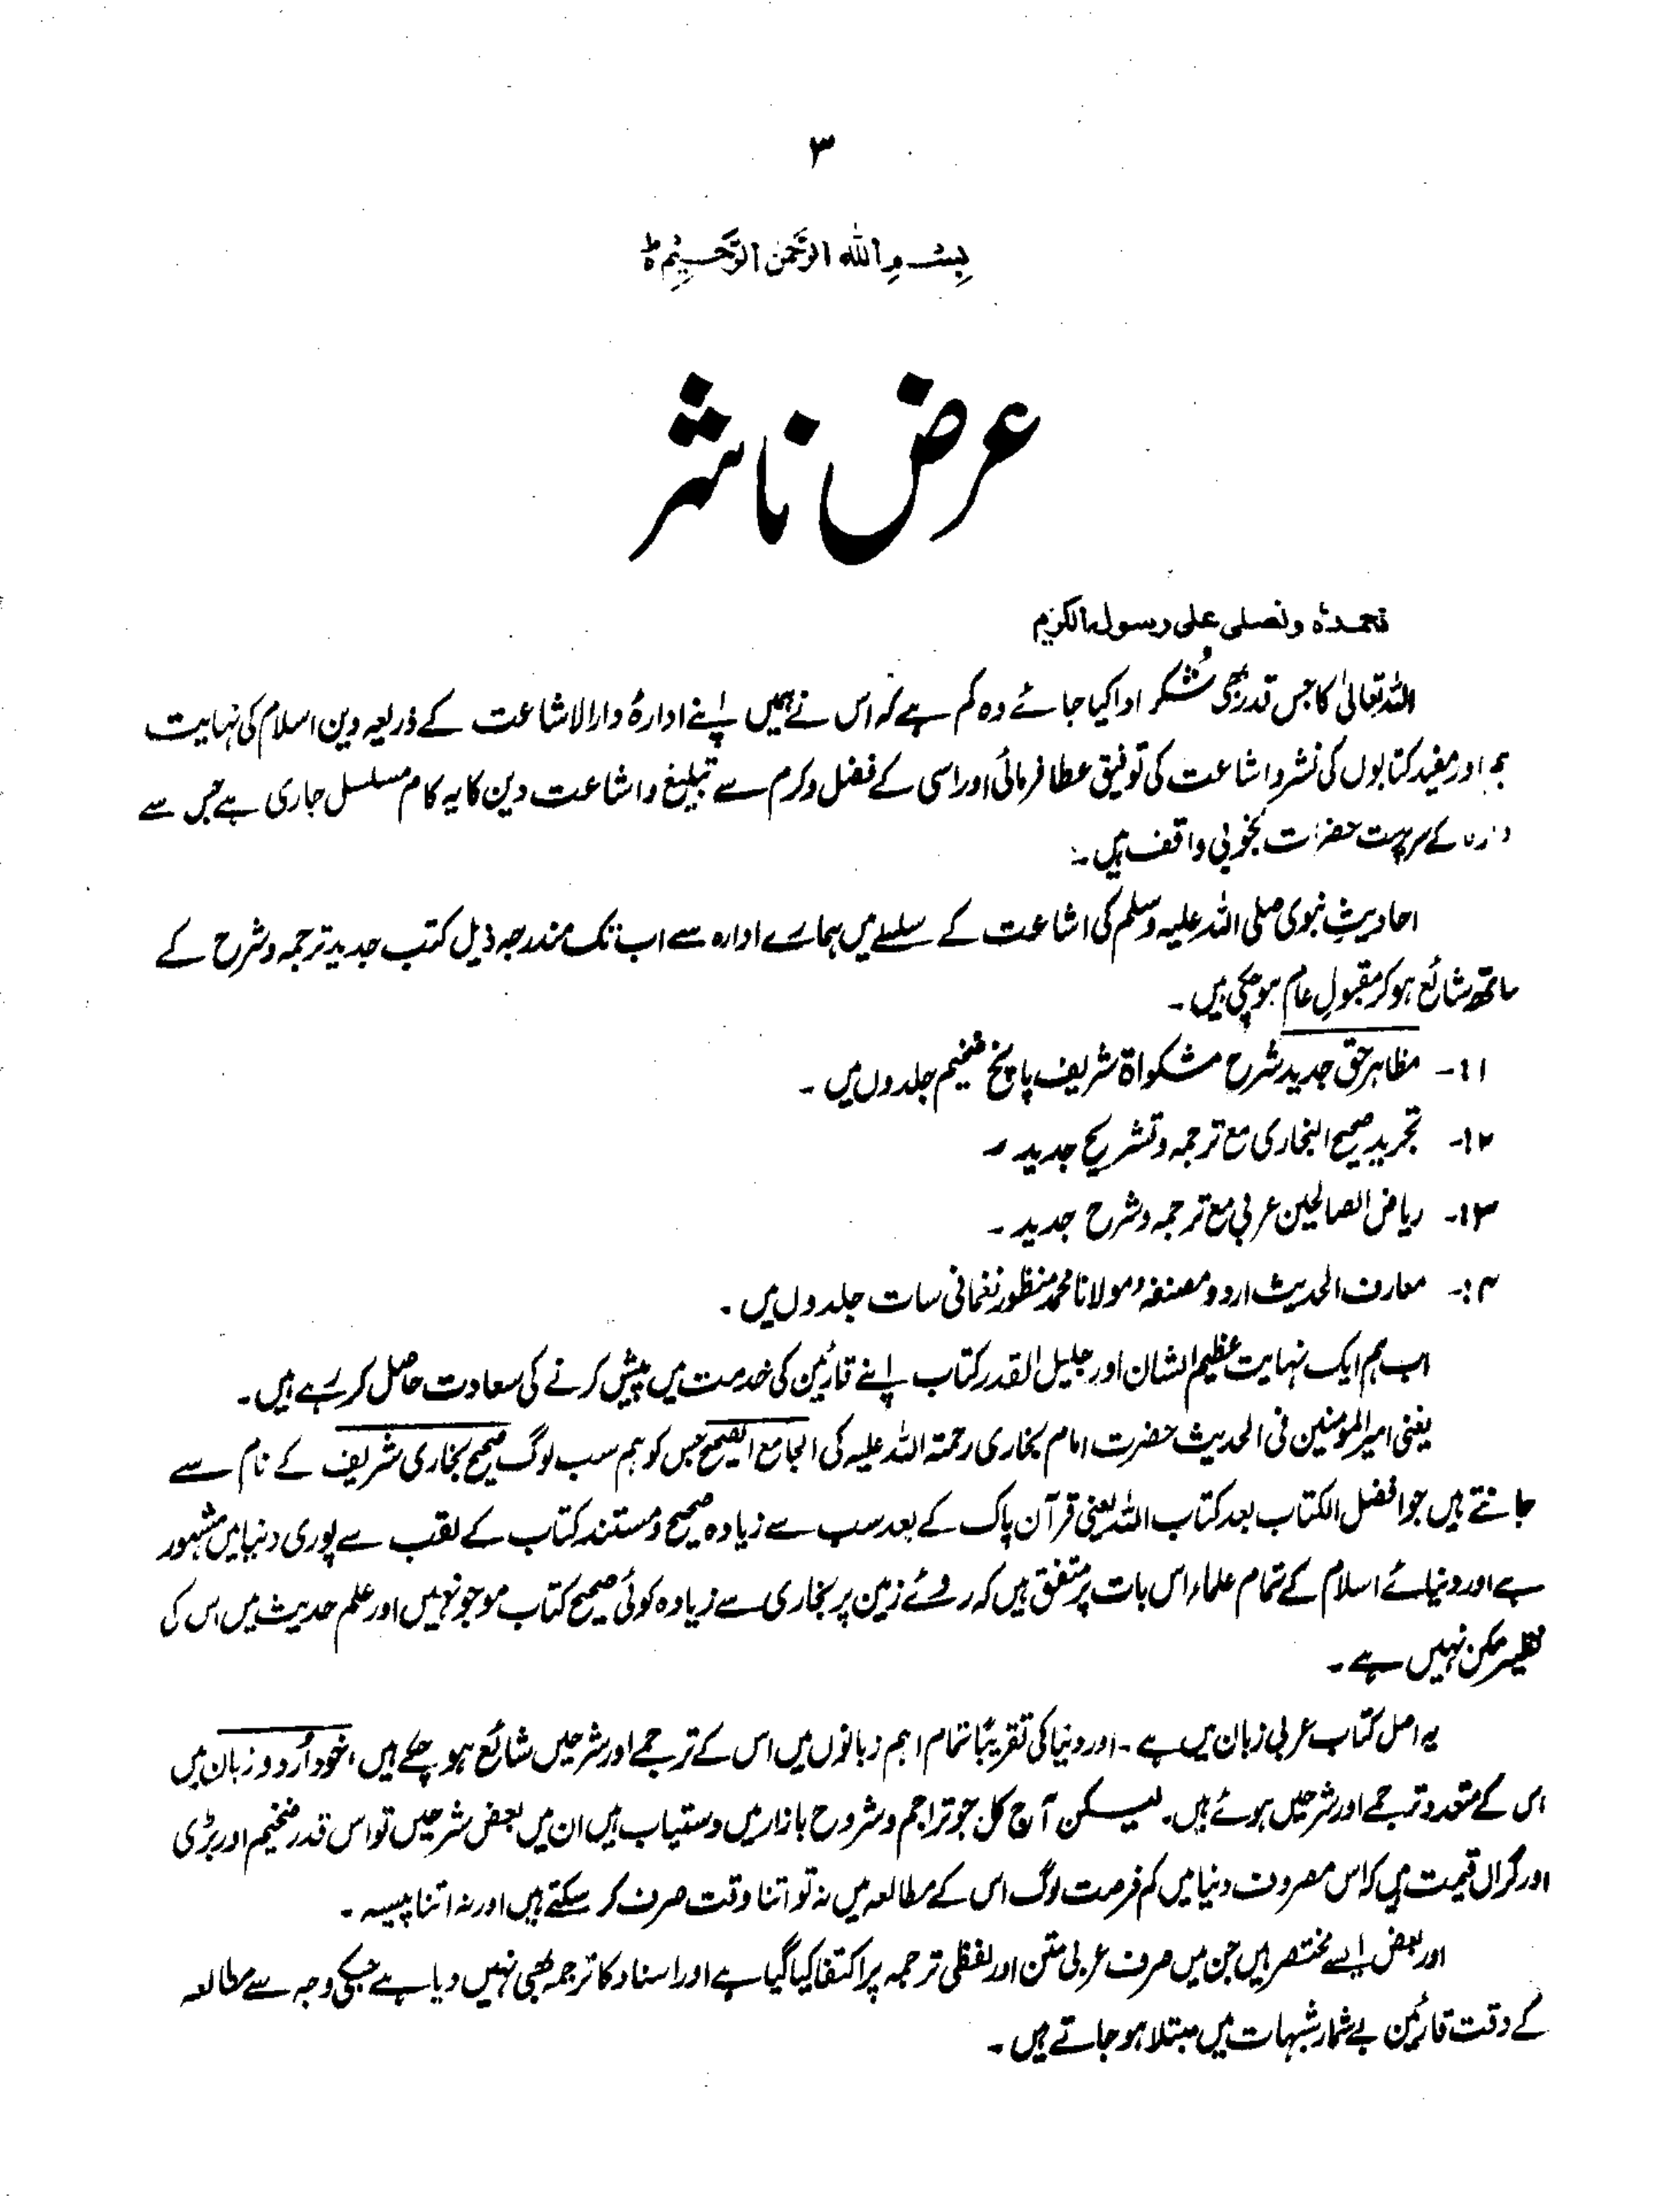 ۳
بِسْمِ اللهِ الرَّحْمٰنِ الرَّحِيْمِ ط
عرض ناشر
نحمدہٗ ونصلی علی رسولہ الکریم
اللہ تعالیٰ کا جس قدر بھی شُکر ادا کیا جائے وہ کم ہے کہ اس نے ہمیں اپنے ادارۂ دارالاشاعت کے ذریعہ دین اسلام کی نہایت
ہم اور مفید کتابوں کی نشر و اشاعت کی توفیق عطا فرمائی اور اسی کے فضل و کرم سے تبلیغ و اشاعت دین کا یہ کام مسلسل جاری ہے جس سے
کے سرپرست حضرات بخوبی واقف ہیں۔
احادیثِ نبوی صلی اللہ علیہ وسلم کی اشاعت کے سلسلے میں ہمارے ادارہ سے اب تک مندرجہ ذیل کتب جدید ترجمہ و شرح کے
ساتھ شائع ہو کر مقبولِ عام ہو چکی ہیں۔
۱:- مظاہر حق جدید شرح مشکواۃ شریف پانچ ضخیم جلدوں میں۔
۲:- تجرید صحیح البخاری مع ترجمہ و تشریح جدید۔
۳:- ریاض الصالحین عربی مع ترجمہ و شرح جدید۔
۴:- معارف الحدیث اردو مصنفہ مولانا محمد منظور نغمانی سات جلدوں میں۔
اب ہم ایک نہایت عظیم الشان اور جلیل القدر کتاب اپنے قارئین کی خدمت میں پیش کرنے کی سعادت حاصل کر رہے ہیں۔
یعنی امیر المؤمنین فی الحدیث حضرت امام بخاری رحمۃ اللہ علیہ کی الجامع الصحیح جس کو ہم سب لوگ صحیح بخاری شریف کے نام سے
جانتے ہیں جو افضل الکتاب بعد کتاب اللہ یعنی قرآن پاک کے بعد سب سے زیادہ صحیح و مستند کتاب کے لقب سے پوری دنیا میں مشہور
ہے اور دنیائے اسلام کے تمام علماء اس بات پر متفق ہیں کہ روئے زمین پر بخاری سے زیادہ کوئی صحیح کتاب موجود نہیں اور علم حدیث میں اس کی
نظیر ممکن نہیں ہے۔
یہ اصل کتاب عربی زبان میں ہے۔ اور دنیا کی تقریبًا تمام اہم زبانوں میں اس کے ترجمے اور شرحیں شائع ہو چکے ہیں، خود اُردو زبان میں
اس کے متعدد ترجمے اور شرحیں ہوئے ہیں۔ لیکن آج کل جو تراجم و شروح بازار میں دستیاب ہیں ان میں بعض شرحیں تو اس قدر ضخیم اور بڑی
اور گراں قیمت ہیں کہ اس مصروف دنیا میں کم فرصت لوگ اس کے مطالعہ میں نہ تو اتنا وقت صرف کر سکتے ہیں اور نہ اتنا پیسہ۔
اور بعض ایسے مختصر ہیں جن میں صرف عربی متن اور لفظی ترجمہ پر اکتفا کیا گیا ہے اور اسناد کا ترجمہ بھی نہیں دیا ہے جسکی وجہ سے مطالعہ
کے وقت قارئین بے شمار شبہات میں مبتلا ہو جاتے ہیں۔